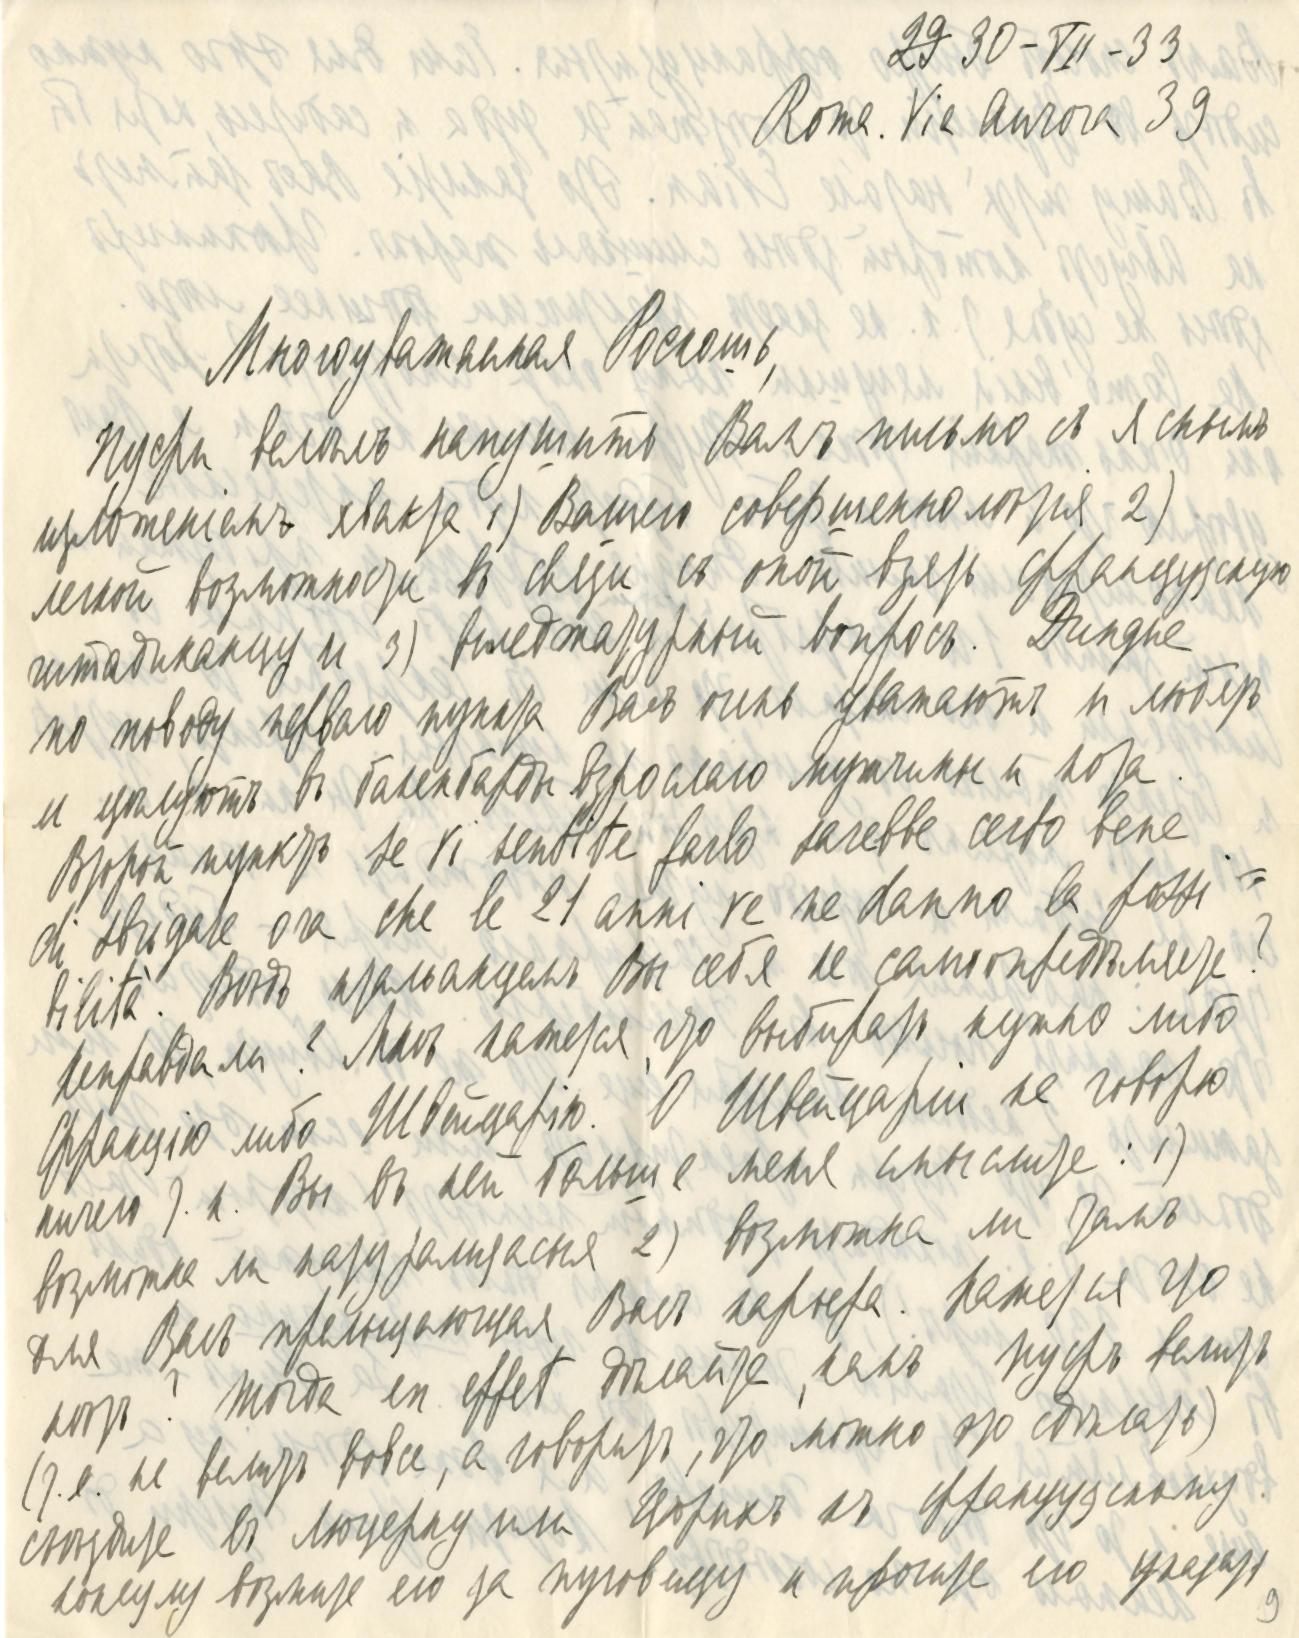 29 30-VII-33
Roma. Via Aurora 39
Многоуважаемая Роскошь,
Пусти велѣлъ написать Вамъ письмо съ яснымъ
изложенiемъ хвакта 1) Вашего совершеннолѣтiя 2)
легкой возможности въ связи съ оной взять французскую
читадиканцу и 3) вопросъ. Диндiе
по поводу перваго пункта Васъ очень уважаютъ и любятъ
и цѣлуютъ въ бакенбарды взрослаго мужчины и кота.
Второй пунктъ se vi sentite farlo sarebbe certo bene
di sbrigare ora che le 21 anni ve ne danno la possi=
bilità. Вѣдь итальянцемъ Вы себя не самоопредѣляете?
Неправда ли? Мнѣ кажется, что выбирать нужно либо
Францiю либо Швейцарiю. О Швейцарiи не говорю
ничего т.к. Вы въ ней больше меня смыслите: 1)
возможна ли натурализасья 2) возможна ли тамъ
для Васъ прельщающая Васъ карьера. Кажется что
нѣтъ? Тогда en effet дѣлайте, какъ Пусть велитъ
(т.е. не велитъ вовсе, а говоритъ, что можно это сдѣлать)
съѣздите въ Люцерну или Цюрихъ къ французскому
консулу возмите его за пуговицу и просите его указать
9